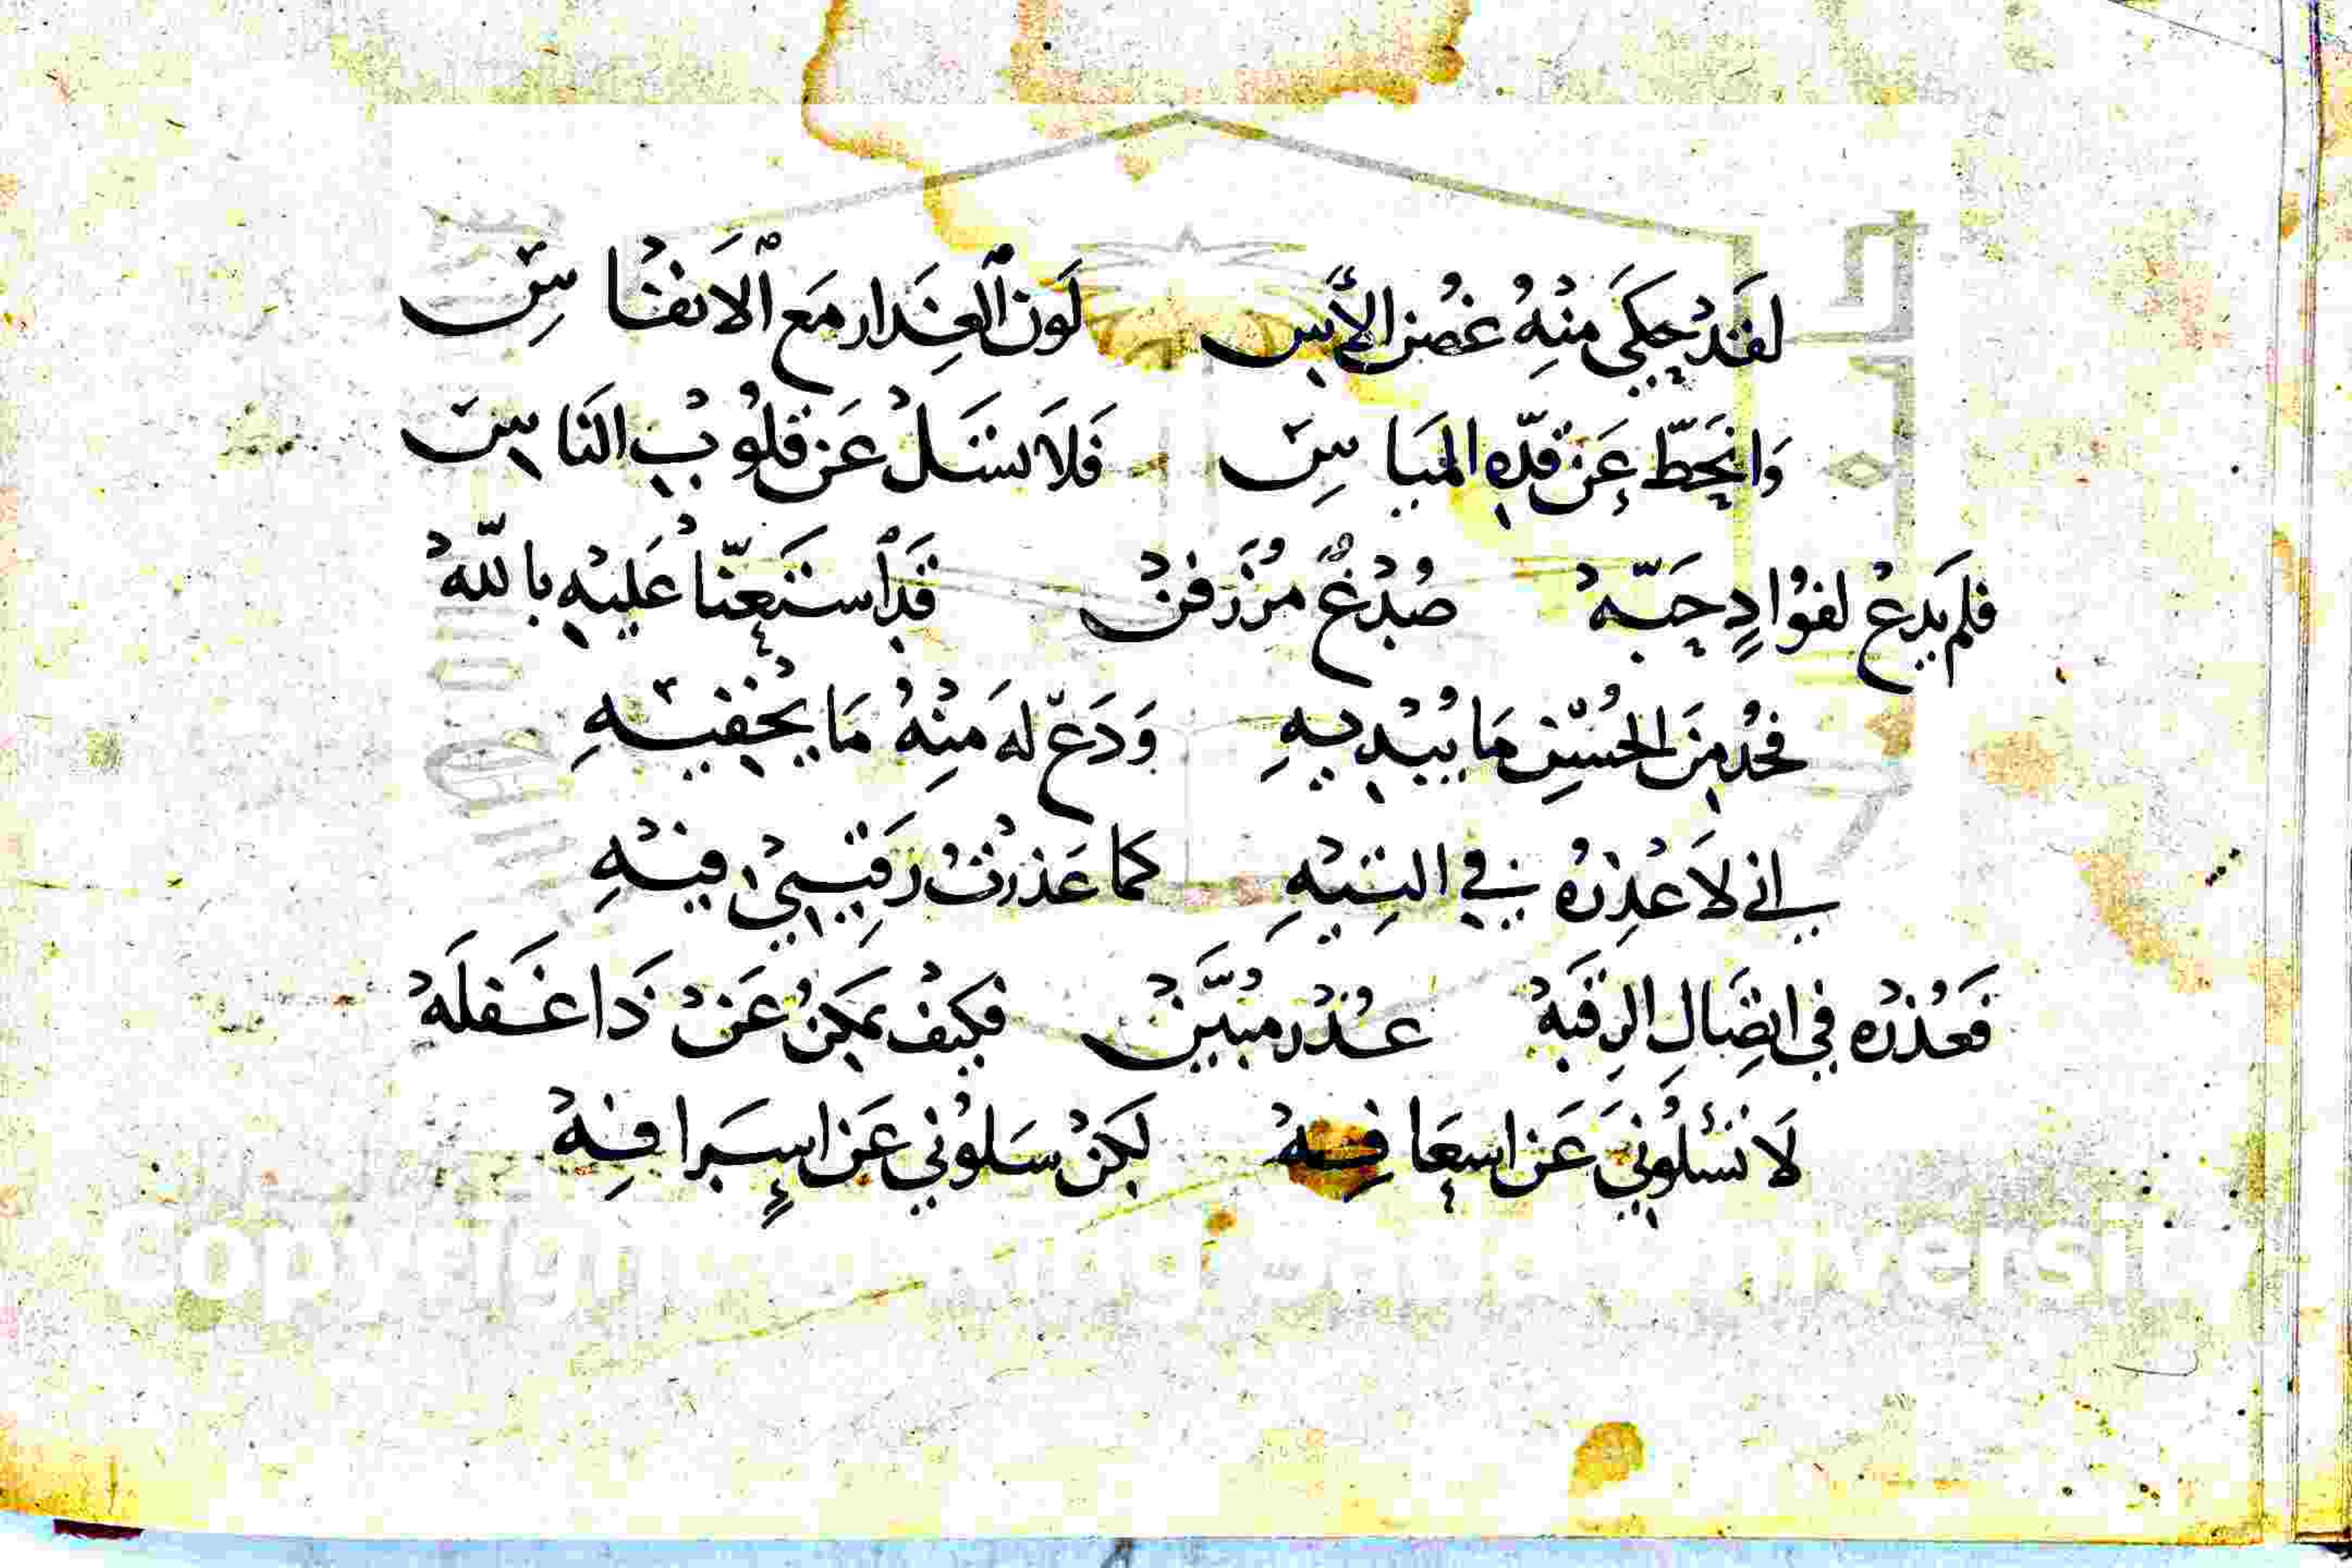 لقد يحكى منه غصن الآس لون العذار مع الانفاس
وانحط عن قده المياس فلا تسل عن قلوب الناس
فلم يدع لفواد حبه صدغ مزرفن قد استعنا عليه بالله
فخذ من الحسن ما يبديه ودع له منه ما يخفيه
اني لاعذره في التيه كما عذرت رقيبي فيه
فعذره في اتصال الرقبه عذر مبين فكيف يمكن عن ذا غفله
لا تسئلوني عن اسعافه لكن سلوني عن اسرافه
Copyright King Saud University